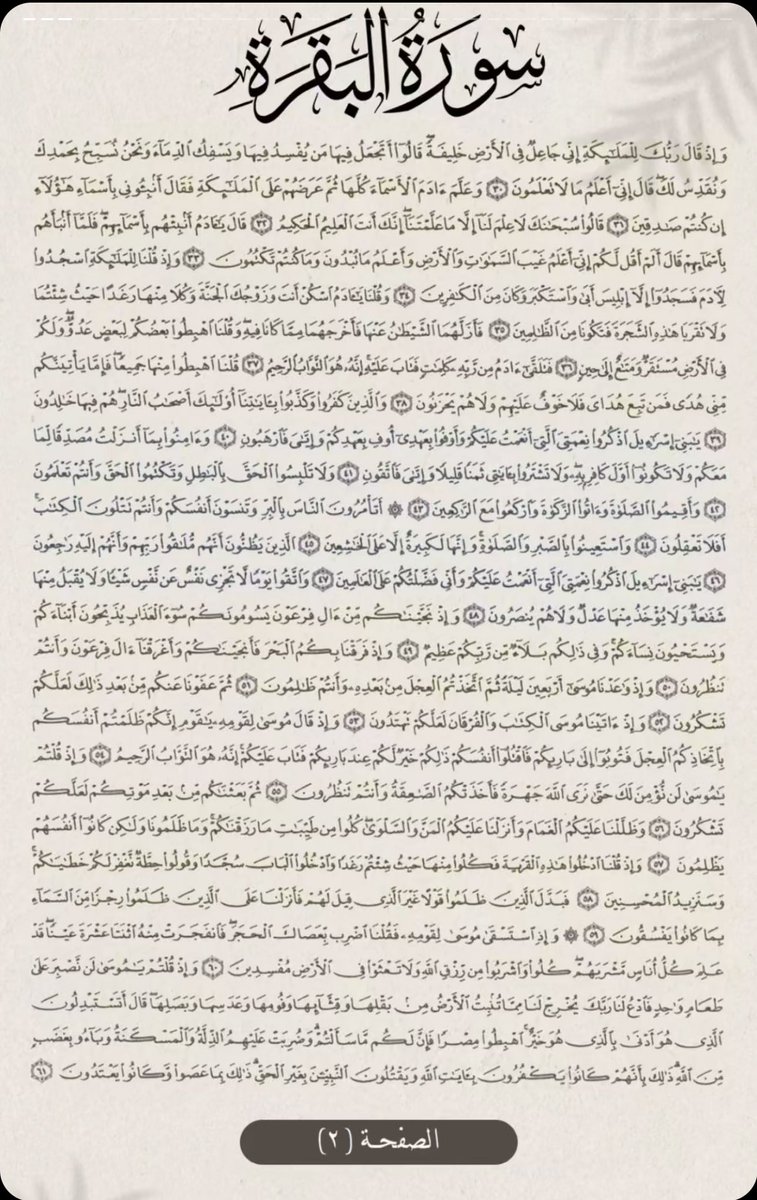 سورة البقرة
وَإِذْ قَالَ رَبُّكَ لِلْمَلَٰٓئِكَةِ إِنِّى جَاعِلٌ فِى ٱلْأَرْضِ خَلِيفَةً ۖ قَالُوٓا۟ أَتَجْعَلُ فِيهَا مَن يُفْسِدُ فِيهَا وَيَسْفِكُ ٱلدِّمَآءَ وَنَحْنُ نُسَبِّحُ بِحَمْدِكَ
وَنُقَدِّسُ لَكَ ۖ قَالَ إِنِّىٓ أَعْلَمُ مَا لَا تَعْلَمُونَ ٣٠ وَعَلَّمَ ءَادَمَ ٱلْأَسْمَآءَ كُلَّهَا ثُمَّ عَرَضَهُمْ عَلَى ٱلْمَلَٰٓئِكَةِ فَقَالَ أَنۢبِـُٔونِى بِأَسْمَآءِ هَٰٓؤُلَآءِ
إِن كُنتُمْ صَٰدِقِينَ ٣١ قَالُوا۟ سُبْحَٰنَكَ لَا عِلْمَ لَنَآ إِلَّا مَا عَلَّمْتَنَآ ۖ إِنَّكَ أَنتَ ٱلْعَلِيمُ ٱلْحَكِيمُ ٣٢ قَالَ يَٰٓـَٔادَمُ أَنۢبِئْهُم بِأَسْمَآئِهِمْ ۖ فَلَمَّآ أَنۢبَأَهُم
بِأَسْمَآئِهِمْ قَالَ أَلَمْ أَقُل لَّكُمْ إِنِّىٓ أَعْلَمُ غَيْبَ ٱلسَّمَٰوَٰتِ وَٱلْأَرْضِ وَأَعْلَمُ مَا تُبْدُونَ وَمَا كُنتُمْ تَكْتُمُونَ ٣٣ وَإِذْ قُلْنَا لِلْمَلَٰٓئِكَةِ ٱسْجُدُوا۟
لِـَٔادَمَ فَسَجَدُوٓا۟ إِلَّآ إِبْلِيسَ أَبَىٰ وَٱسْتَكْبَرَ وَكَانَ مِنَ ٱلْكَٰفِرِينَ ٣٤ وَقُلْنَا يَٰٓـَٔادَمُ ٱسْكُنْ أَنتَ وَزَوْجُكَ ٱلْجَنَّةَ وَكُلَا مِنْهَا رَغَدًا حَيْثُ شِئْتُمَا
وَلَا تَقْرَبَا هَٰذِهِ ٱلشَّجَرَةَ فَتَكُونَا مِنَ ٱلظَّٰلِمِينَ ٣٥ فَأَزَلَّهُمَا ٱلشَّيْطَٰنُ عَنْهَا فَأَخْرَجَهُمَا مِمَّا كَانَا فِيهِ ۖ وَقُلْنَا ٱهْبِطُوا۟ بَعْضُكُمْ لِبَعْضٍ عَدُوٌّ ۖ وَلَكُمْ
فِى ٱلْأَرْضِ مُسْتَقَرٌّ وَمَتَٰعٌ إِلَىٰ حِينٍ ٣٦ فَتَلَقَّىٰٓ ءَادَمُ مِن رَّبِّهِۦ كَلِمَٰتٍ فَتَابَ عَلَيْهِ ۚ إِنَّهُۥ هُوَ ٱلتَّوَّابُ ٱلرَّحِيمُ ٣٧ قُلْنَا ٱهْبِطُوا۟ مِنْهَا جَمِيعًا ۖ فَإِمَّا يَأْتِيَنَّكُم
مِّنِّى هُدًى فَمَن تَبِعَ هُدَاىَ فَلَا خَوْفٌ عَلَيْهِمْ وَلَا هُمْ يَحْزَنُونَ ٣٨ وَٱلَّذِينَ كَفَرُوا۟ وَكَذَّبُوا۟ بِـَٔايَٰتِنَآ أُو۟لَٰٓئِكَ أَصْحَٰبُ ٱلنَّارِ ۖ هُمْ فِيهَا خَٰلِدُونَ
٣٩ يَٰبَنِىٓ إِسْرَٰٓءِيلَ ٱذْكُرُوا۟ نِعْمَتِىَ ٱلَّتِىٓ أَنْعَمْتُ عَلَيْكُمْ وَأَوْفُوا۟ بِعَهْدِىٓ أُوفِ بِعَهْدِكُمْ وَإِيَّٰىَ فَٱرْهَبُونِ ٤٠ وَءَامِنُوا۟ بِمَآ أَنزَلْتُ مُصَدِّقًا لِّمَا
مَعَكُمْ وَلَا تَكُونُوٓا۟ أَوَّلَ كَافِرٍۭ بِهِۦ ۖ وَلَا تَشْتَرُوا۟ بِـَٔايَٰتِى ثَمَنًا قَلِيلًا وَإِيَّٰىَ فَٱتَّقُونِ ٤١ وَلَا تَلْبِسُوا۟ ٱلْحَقَّ بِٱلْبَٰطِلِ وَتَكْتُمُوا۟ ٱلْحَقَّ وَأَنتُمْ تَعْلَمُونَ
٤٢ وَأَقِيمُوا۟ ٱلصَّلَوٰةَ وَءَاتُوا۟ ٱلزَّكَوٰةَ وَٱرْكَعُوا۟ مَعَ ٱلرَّٰكِعِينَ ٤٣ ۞ أَتَأْمُرُونَ ٱلنَّاسَ بِٱلْبِرِّ وَتَنسَوْنَ أَنفُسَكُمْ وَأَنتُمْ تَتْلُونَ ٱلْكِتَٰبَ ۚ
أَفَلَا تَعْقِلُونَ ٤٤ وَٱسْتَعِينُوا۟ بِٱلصَّبْرِ وَٱلصَّلَوٰةِ ۚ وَإِنَّهَا لَكَبِيرَةٌ إِلَّا عَلَى ٱلْخَٰشِعِينَ ٤٥ ٱلَّذِينَ يَظُنُّونَ أَنَّهُم مُّلَٰقُوا۟ رَبِّهِمْ وَأَنَّهُمْ إِلَيْهِ رَٰجِعُونَ
٤٦ يَٰبَنِىٓ إِسْرَٰٓءِيلَ ٱذْكُرُوا۟ نِعْمَتِىَ ٱلَّتِىٓ أَنْعَمْتُ عَلَيْكُمْ وَأَنِّى فَضَّلْتُكُمْ عَلَى ٱلْعَٰلَمِينَ ٤٧ وَٱتَّقُوا۟ يَوْمًا لَّا تَجْزِى نَفْسٌ عَن نَّفْسٍ شَيْـًٔا وَلَا يُقْبَلُ مِنْهَا
شَفَٰعَةٌ وَلَا يُؤْخَذُ مِنْهَا عَدْلٌ وَلَا هُمْ يُنصَرُونَ ٤٨ وَإِذْ نَجَّيْنَٰكُم مِّنْ ءَالِ فِرْعَوْنَ يَسُومُونَكُمْ سُوٓءَ ٱلْعَذَابِ يُذَبِّحُونَ أَبْنَآءَكُمْ
وَيَسْتَحْيُونَ نِسَآءَكُمْ ۚ وَفِى ذَٰلِكُم بَلَآءٌ مِّن رَّبِّكُمْ عَظِيمٌ ٤٩ وَإِذْ فَرَقْنَا بِكُمُ ٱلْبَحْرَ فَأَنجَيْنَٰكُمْ وَأَغْرَقْنَآ ءَالَ فِرْعَوْنَ وَأَنتُمْ
تَنظُرُونَ ٥٠ وَإِذْ وَٰعَدْنَا مُوسَىٰٓ أَرْبَعِينَ لَيْلَةً ثُمَّ ٱتَّخَذْتُمُ ٱلْعِجْلَ مِنۢ بَعْدِهِۦ وَأَنتُمْ ظَٰلِمُونَ ٥١ ثُمَّ عَفَوْنَا عَنكُم مِّنۢ بَعْدِ ذَٰلِكَ لَعَلَّكُمْ
تَشْكُرُونَ ٥٢ وَإِذْ ءَاتَيْنَا مُوسَى ٱلْكِتَٰبَ وَٱلْفُرْقَانَ لَعَلَّكُمْ تَهْتَدُونَ ٥٣ وَإِذْ قَالَ مُوسَىٰ لِقَوْمِهِۦ يَٰقَوْمِ إِنَّكُمْ ظَلَمْتُمْ أَنفُسَكُم
بِٱتِّخَاذِكُمُ ٱلْعِجْلَ فَتُوبُوٓا۟ إِلَىٰ بَارِئِكُمْ فَٱقْتُلُوٓا۟ أَنفُسَكُمْ ذَٰلِكُمْ خَيْرٌ لَّكُمْ عِندَ بَارِئِكُمْ فَتَابَ عَلَيْكُمْ ۚ إِنَّهُۥ هُوَ ٱلتَّوَّابُ ٱلرَّحِيمُ ٥٤ وَإِذْ قُلْتُمْ
يَٰمُوسَىٰ لَن نُّؤْمِنَ لَكَ حَتَّىٰ نَرَى ٱللَّهَ جَهْرَةً فَأَخَذَتْكُمُ ٱلصَّٰعِقَةُ وَأَنتُمْ تَنظُرُونَ ٥٥ ثُمَّ بَعَثْنَٰكُم مِّنۢ بَعْدِ مَوْتِكُمْ لَعَلَّكُمْ
تَشْكُرُونَ ٥٦ وَظَلَّلْنَا عَلَيْكُمُ ٱلْغَمَامَ وَأَنزَلْنَا عَلَيْكُمُ ٱلْمَنَّ وَٱلسَّلْوَىٰ ۖ كُلُوا۟ مِن طَيِّبَٰتِ مَا رَزَقْنَٰكُمْ ۖ وَمَا ظَلَمُونَا وَلَٰكِن كَانُوٓا۟ أَنفُسَهُمْ
يَظْلِمُونَ ٥٧ وَإِذْ قُلْنَا ٱدْخُلُوا۟ هَٰذِهِ ٱلْقَرْيَةَ فَكُلُوا۟ مِنْهَا حَيْثُ شِئْتُمْ رَغَدًا وَٱدْخُلُوا۟ ٱلْبَابَ سُجَّدًا وَقُولُوا۟ حِطَّةٌ نَّغْفِرْ لَكُمْ خَطَٰيَٰكُمْ ۚ
وَسَنَزِيدُ ٱلْمُحْسِنِينَ ٥٨ فَبَدَّلَ ٱلَّذِينَ ظَلَمُوا۟ قَوْلًا غَيْرَ ٱلَّذِى قِيلَ لَهُمْ فَأَنزَلْنَا عَلَى ٱلَّذِينَ ظَلَمُوا۟ رِجْزًا مِّنَ ٱلسَّمَآءِ
بِمَا كَانُوا۟ يَفْسُقُونَ ٥٩ ۞ وَإِذِ ٱسْتَسْقَىٰ مُوسَىٰ لِقَوْمِهِۦ فَقُلْنَا ٱضْرِب بِّعَصَاكَ ٱلْحَجَرَ ۖ فَٱنفَجَرَتْ مِنْهُ ٱثْنَتَا عَشْرَةَ عَيْنًا ۖ قَدْ
عَلِمَ كُلُّ أُنَاسٍ مَّشْرَبَهُمْ ۖ كُلُوا۟ وَٱشْرَبُوا۟ مِن رِّزْقِ ٱللَّهِ وَلَا تَعْثَوْا۟ فِى ٱلْأَرْضِ مُفْسِدِينَ ٦٠ وَإِذْ قُلْتُمْ يَٰمُوسَىٰ لَن نَّصْبِرَ عَلَىٰ
طَعَامٍ وَٰحِدٍ فَٱدْعُ لَنَا رَبَّكَ يُخْرِجْ لَنَا مِمَّا تُنۢبِتُ ٱلْأَرْضُ مِنۢ بَقْلِهَا وَقِثَّآئِهَا وَفُومِهَا وَعَدَسِهَا وَبَصَلِهَا ۖ قَالَ أَتَسْتَبْدِلُونَ
ٱلَّذِى هُوَ أَدْنَىٰ بِٱلَّذِى هُوَ خَيْرٌ ۚ ٱهْبِطُوا۟ مِصْرًا فَإِنَّ لَكُم مَّا سَأَلْتُمْ ۗ وَضُرِبَتْ عَلَيْهِمُ ٱلذِّلَّةُ وَٱلْمَسْكَنَةُ وَبَآءُو بِغَضَبٍ
مِّنَ ٱللَّهِ ۗ ذَٰلِكَ بِأَنَّهُمْ كَانُوا۟ يَكْفُرُونَ بِـَٔايَٰتِ ٱللَّهِ وَيَقْتُلُونَ ٱلنَّبِيِّـۧنَ بِغَيْرِ ٱلْحَقِّ ۗ ذَٰلِكَ بِمَا عَصَوا۟ وَّكَانُوا۟ يَعْتَدُونَ ٦١
الصفحة (٢)